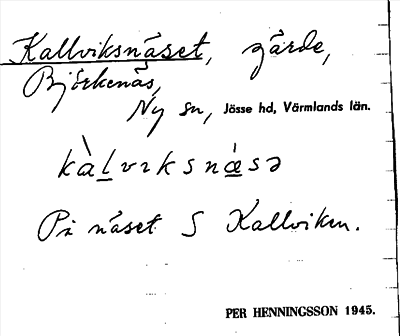 Kallviksnäset, gärde,
Björkenäs,
Ny sn, Jösse hd, Värmlands län.
kàlvɩksnæ̀sə
På näset S Kallviken.
PER HENNINGSSON 1945.